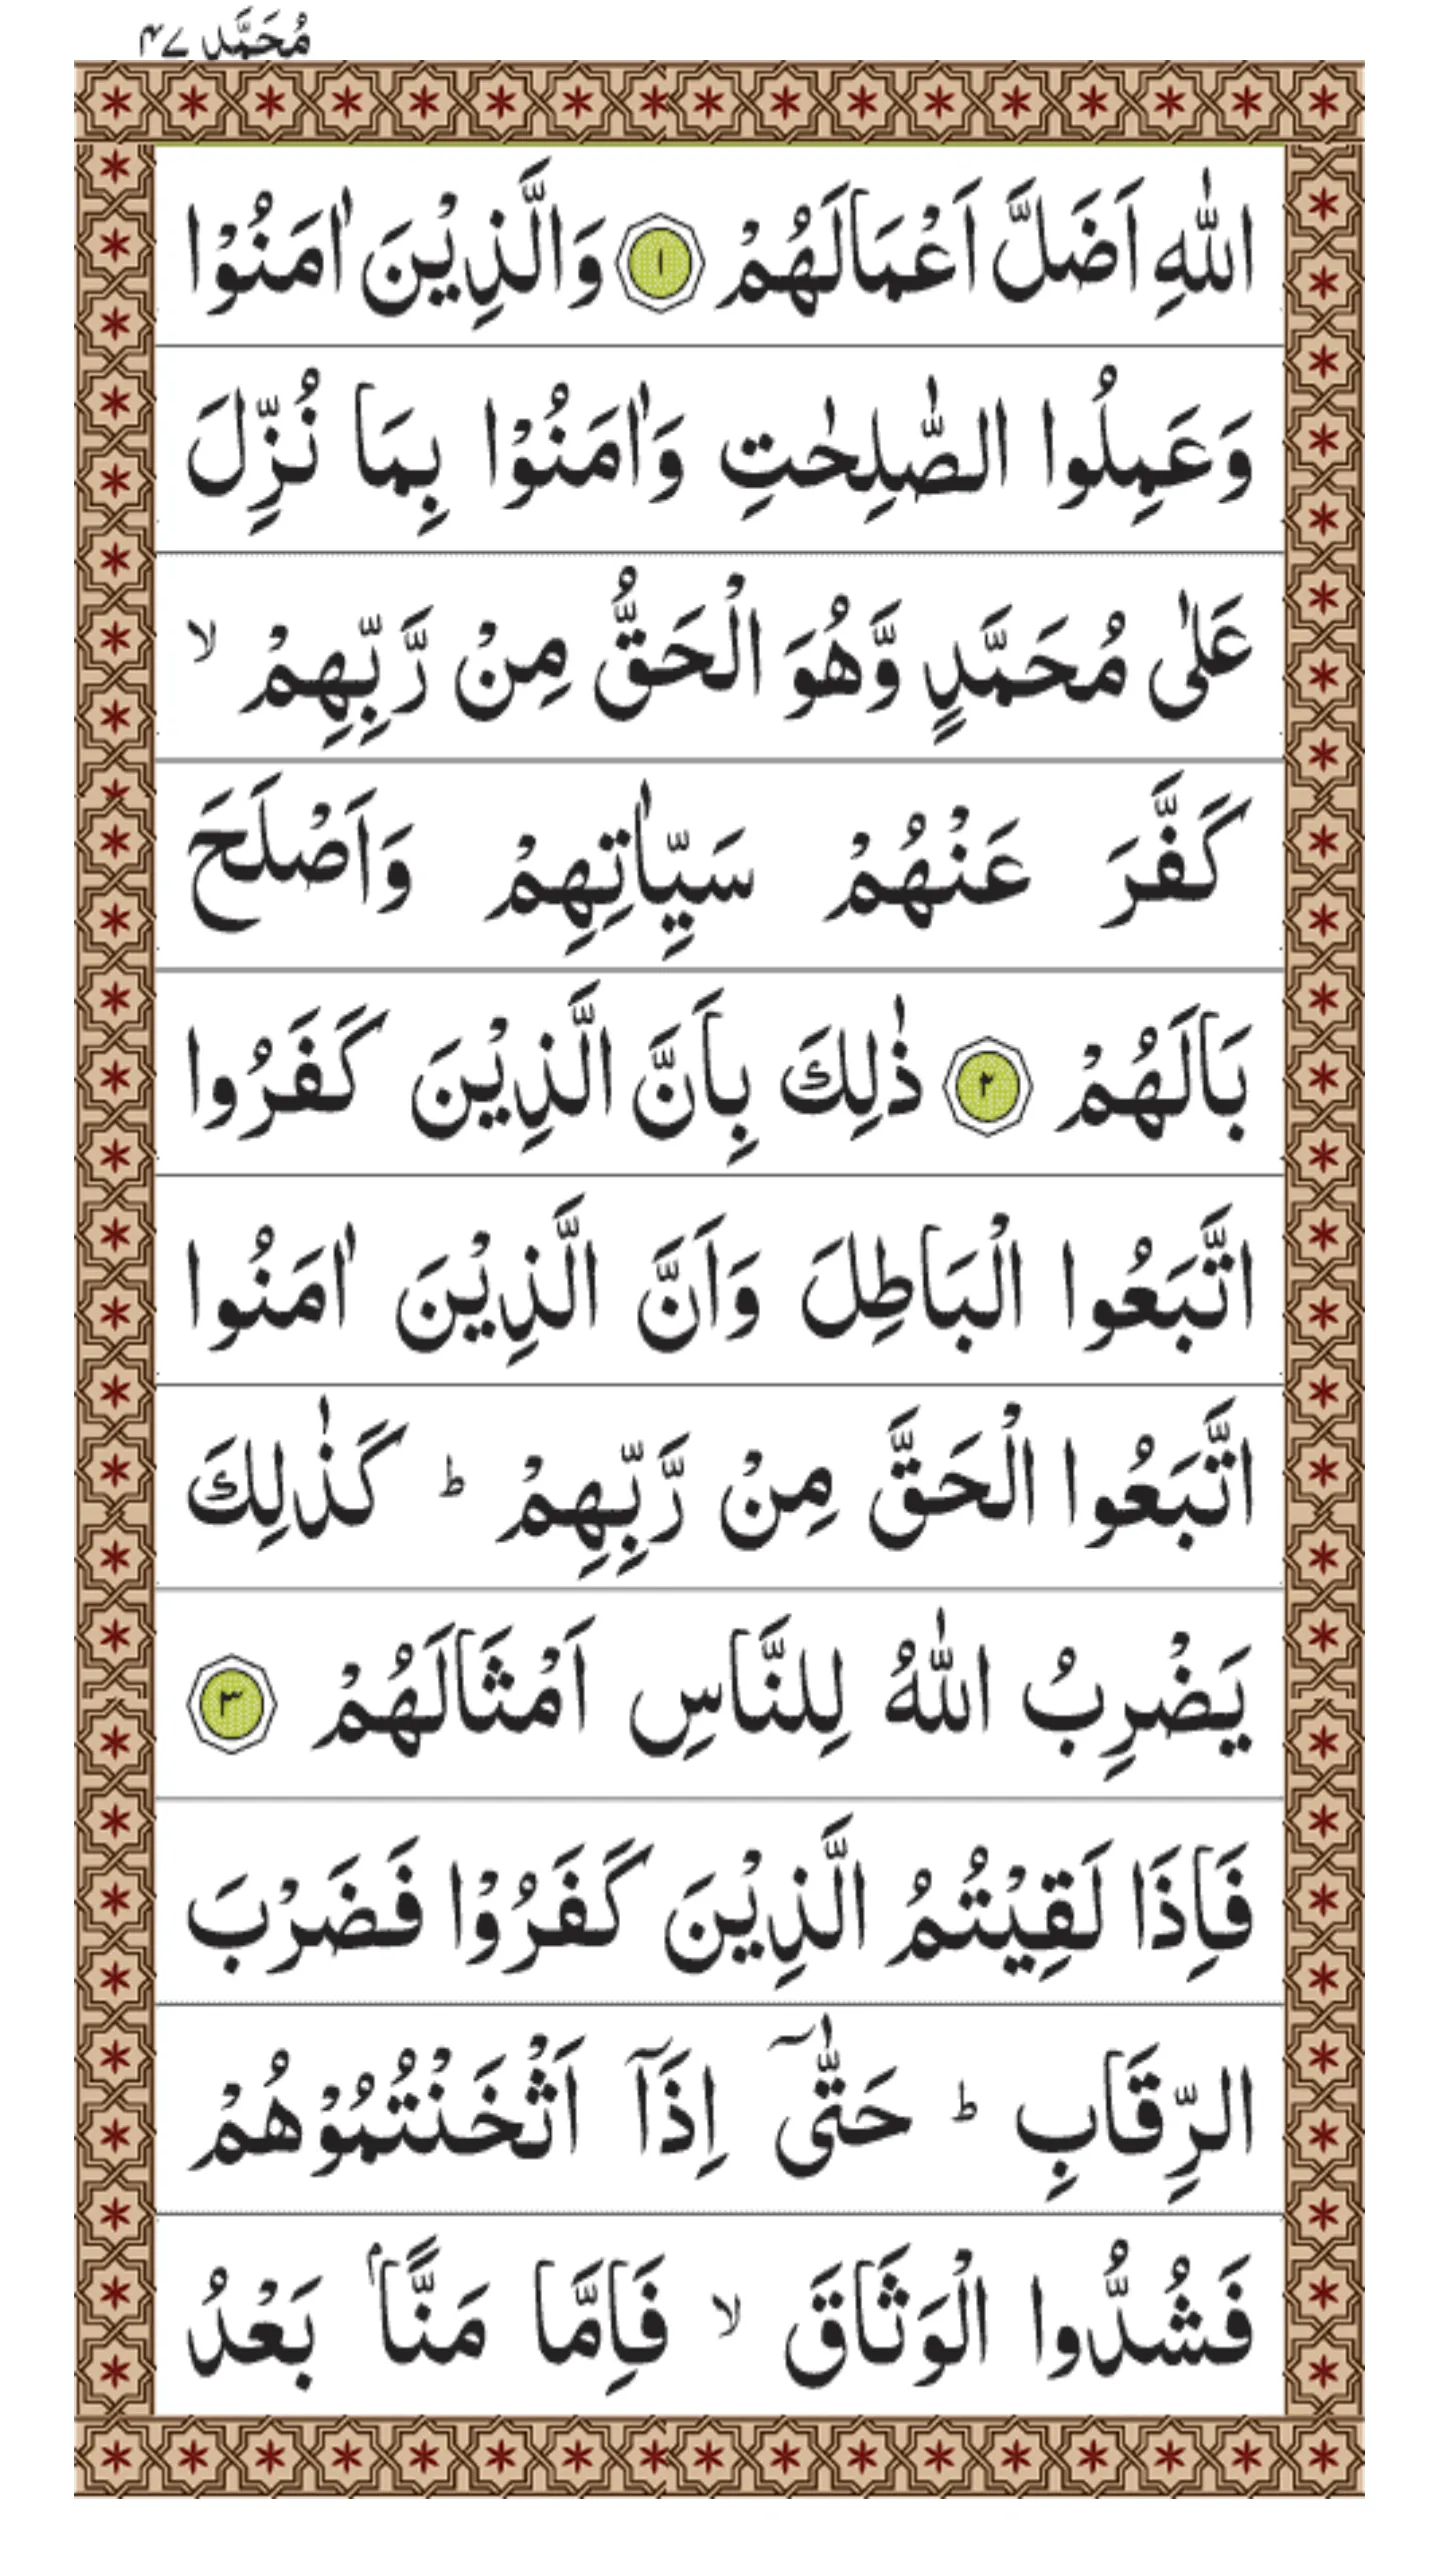 مُحَمَّد ٤٧
اللّٰهِ اَضَلَّ اَعْمَالَهُمْ ١ وَالَّذِيْنَ اٰمَنُوْا
وَعَمِلُوا الصّٰلِحٰتِ وَاٰمَنُوْا بِمَا نُزِّلَ
عَلٰى مُحَمَّدٍ وَّهُوَ الْحَقُّ مِنْ رَّبِّهِمْ ۙ
كَفَّرَ عَنْهُمْ سَيِّاٰتِهِمْ وَاَصْلَحَ
بَالَهُمْ ٢ ذٰلِكَ بِاَنَّ الَّذِيْنَ كَفَرُوا
اتَّبَعُوا الْبَاطِلَ وَاَنَّ الَّذِيْنَ اٰمَنُوا
اتَّبَعُوا الْحَقَّ مِنْ رَّبِّهِمْ ؕ كَذٰلِكَ
يَضْرِبُ اللّٰهُ لِلنَّاسِ اَمْثَالَهُمْ ٣
فَاِذَا لَقِيْتُمُ الَّذِيْنَ كَفَرُوْا فَضَرْبَ
الرِّقَابِ ؕ حَتّٰٓى اِذَاۤ اَثْخَنْتُمُوْهُمْ
فَشُدُّوا الْوَثَاقَ ۙ فَاِمَّا مَنًّاۢ بَعْدُ